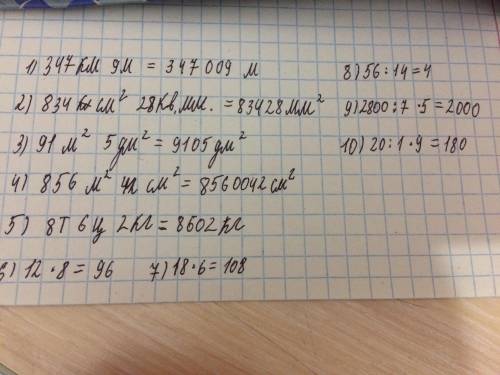 1) 347 км 9м = 347 009 м
2) 834 см² 28 кв. мм. = 83428 мм²
3) 91 м² 5 дм² = 9105 дм²
4) 856 м² см² = 8560042 см²
5) 8т 6ц 2кг = 8602 кг
6) 12 · 8 = 96
7) 18 · 6 = 108
8) 56 : 14 = 4
9) 2800 : 7 · 5 = 2000
10) 20 : 1 · 9 = 180